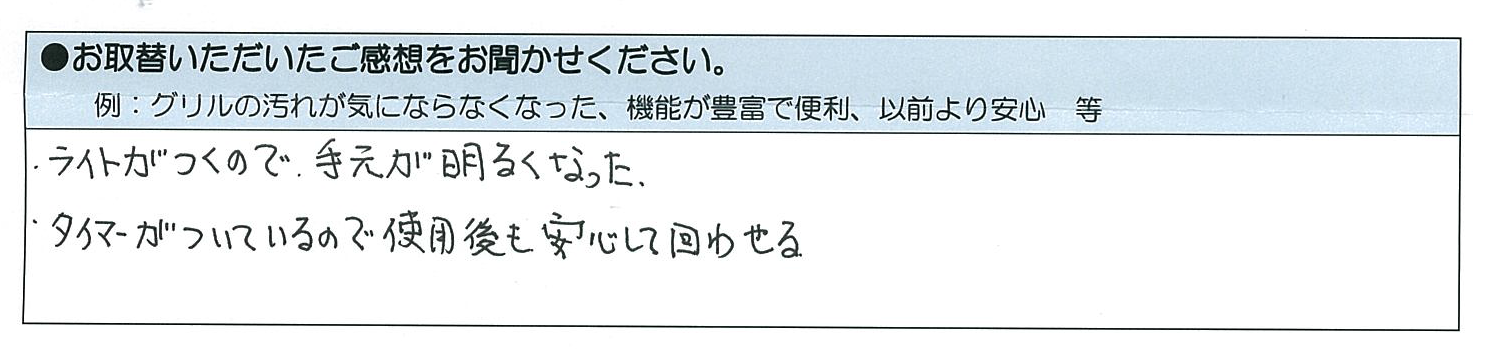 ●お取替いただいたご感想をお聞かせください。
例：グリルの汚れが気にならなくなった、機能が豊富で便利、以前より安心　等
・ライトがつくので、手元が明るくなった、
・タイマーがついているので使用後も安心して回わせる